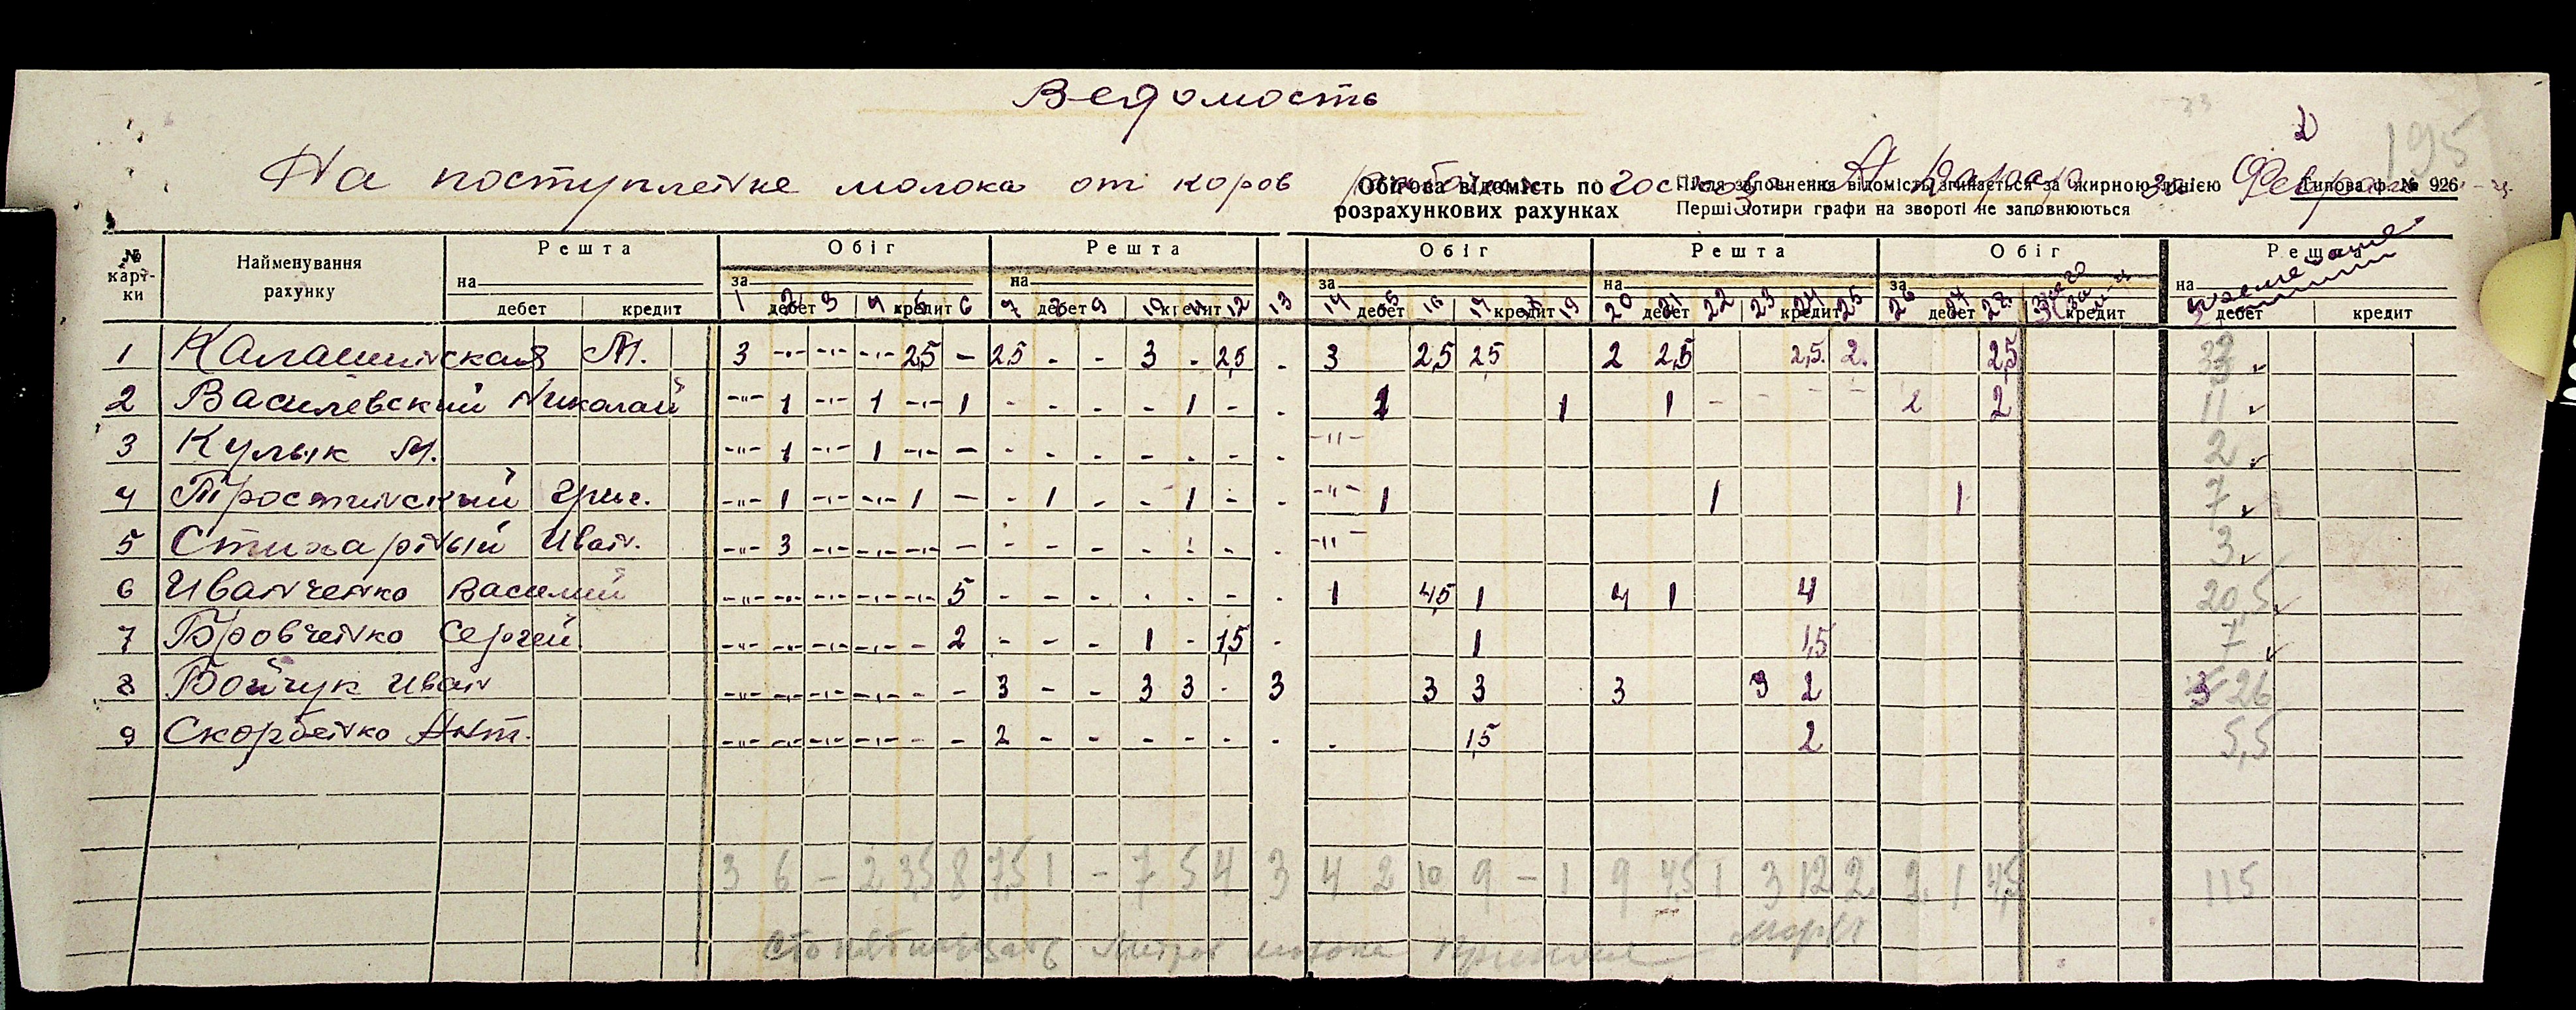 Ведомость
2
195
На поступление молока от коров за Февраль
Обігова відомість по розрахункових рахунках
Після заповнення відомість згинається за жирною лінією
Перші чотири графи на звороті не заповнюються
Типова ф. № 926
№ картки Найменування рахунку Решта Обіг Решта Обіг Решта Обіг Решта
на за на за на за на
дебет кредит дебет кредит дебет кредит дебет кредит дебет кредит дебет кредит дебет кредит
1 2 3 4 5 6 7 8 9 10 11 12 13 14 15 16 17 18 19 20 21 22 23 24 25 26 27 28
1 Калашинская М. 3 -"- -"- -"- 2,5 - 2,5 - - 3 - 2,5 - 3 2,5 2,5 2 2,5 2,5 2 2,5 33
2 Василевский Николай -"- 1 -"- 1 -"- 1 - - - - 1 - - 1 1 1 - - - 2 2 11
3 Кулык М. -"- 1 -"- 1 -"- - - - - - - - - -"- 2
4 Тростинский Григ. -"- 1 -"- -"- 1 - - 1 - - 1 - - -"- 1 1 1 7
5 Стихарный Иван. -"- 3 -"- -"- -"- - - - - - - - - -"- 3
6 Иванченко Василий -"- -"- -"- -"- -"- 5 - - - - - - - 1 4,5 1 4 1 4 20,5
7 Бровченко Сергей -"- -"- -"- -"- - 2 - - - 1 - 1,5 - 1 1,5 7
8 Бойчук Иван -"- -"- -"- -"- - - 3 - - 3 3 - 3 3 3 3 3 2 26
9 Скорбенко Ант. -"- -"- -"- -"- - - 2 - - - - - - - 1,5 2 5,5
3 6 - 2 3,5 8 7,5 1 - 7 5 4 3 4 2 10 9 - 1 9 4,5 1 3 12 2 2 1 4,5 115
Сто пятнадцать литров молока Принял